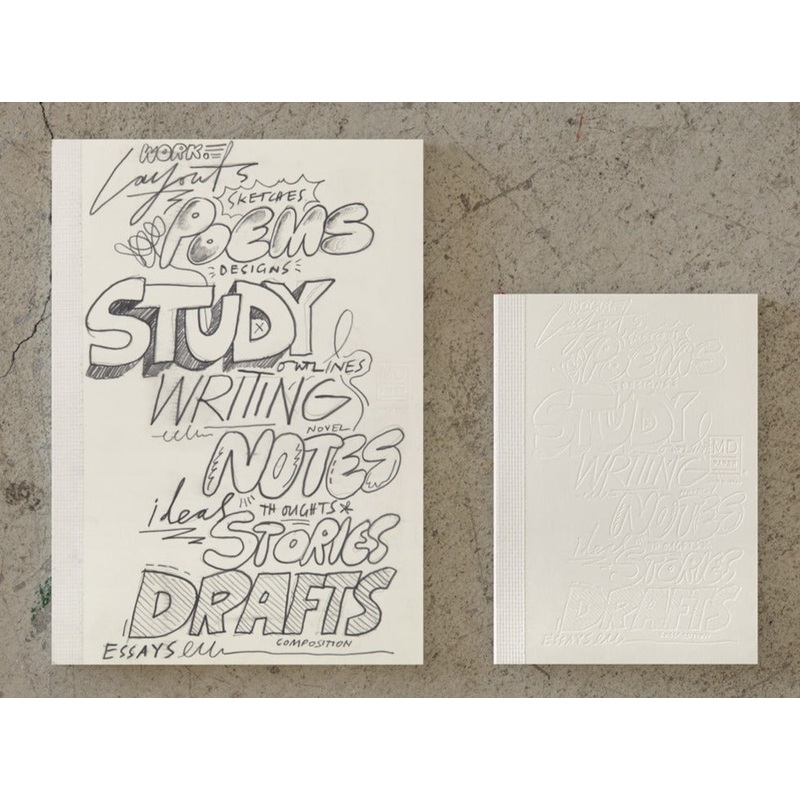 WORK
Layouts
SKETCHES
POEMS
DESIGNS
STUDY
OUTLINES
WRITING
NOVEL
NOTES
ideas
THOUGHTS
STORIES
DRAFTS
COMPOSITION
ESSAYS
Layouts
POEMS
DESIGNS
STUDY
MD
WRITING
NOTES
STORIES
DRAFTS
COMPOSITION
ESSAYS